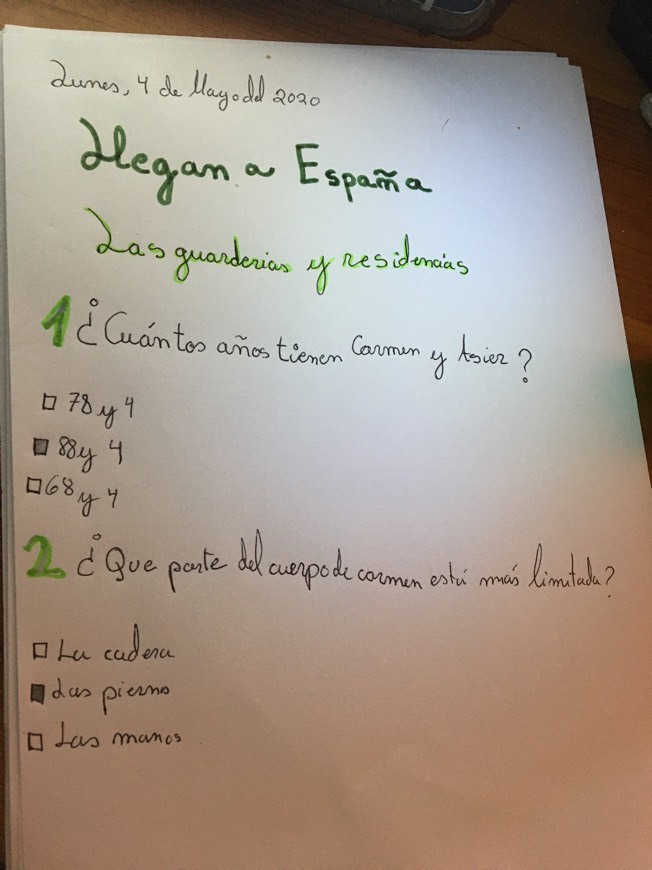 Lunes, 4 de Mayo del 2020
Llegan a España
Las guarderias y residencias
1 ¿Cuántos años tienen Carmen y Asier?
78 y 4
88 y 4
68 y 4
2 ¿Que parte del cuerpo de carmen está más limitada?
La cadera
Las pierna
Las manos